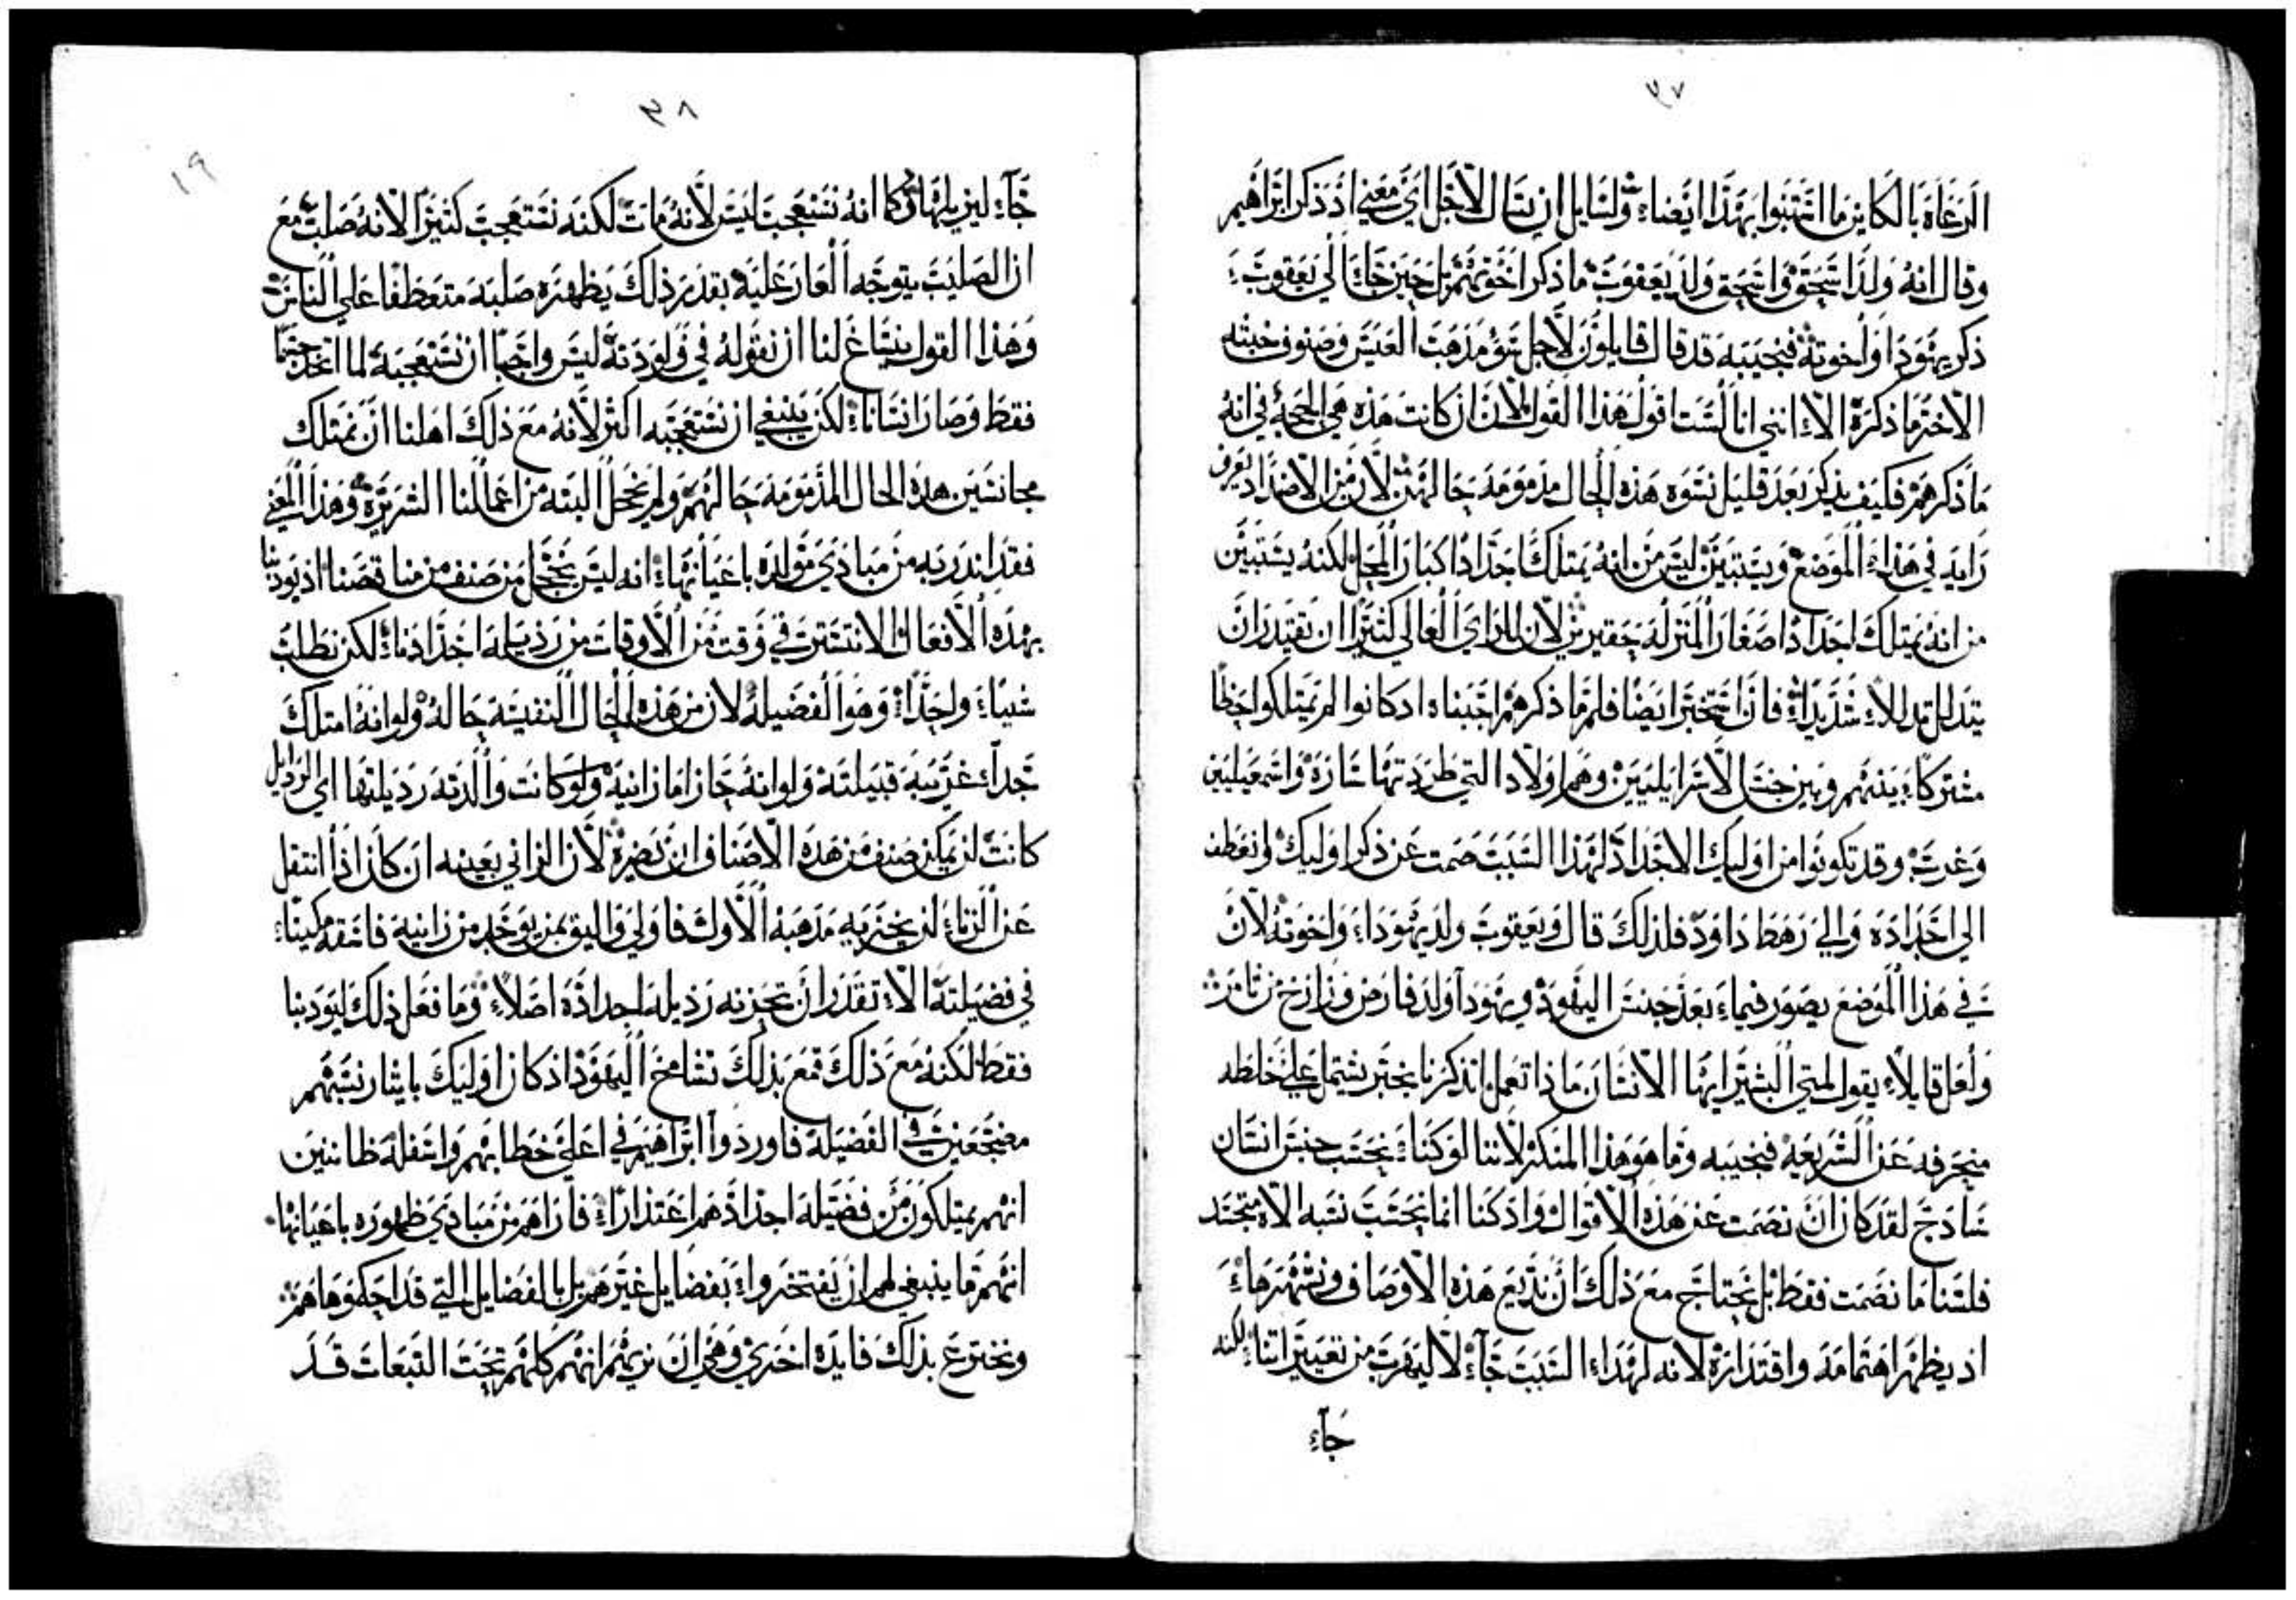 ٣٧
الرعاة بالكاين ما انتهبوا بهذا ايضاء ولسايل ان يسال لاجل اي معني اذ ذكر ابراهيم
وقال انه ولد اسحق واسحق ولد يعقوب ما ذكر اخوتهم بل حين جاء الي يعقوب
ذكر يهودا واخوته فنجيبه قد قال قايلون لاجل سؤ مذهب العيس وصنوف خبثه
الاخر ما ذكره الا انني انا لست اقول هذا القول لان ان كانت هذه هي الحجة في انه
ما ذكرهم فكيف يذكر بعد قليل نسوه هذه الحال مذمومة حالهن لان من الاضداد يعرف
زايد في هذا الموضع ويستبين ليس من انه يمتلك اجدادا كبار المحل لكنه يستبين
من انه يمتلك اجدادا صغار المنزله حقيرين لان للراي العالي كثيرا ان يقتدر ان
يتدلل تدللا شديدا فان استخبر ايضا فلم ما ذكرهم اجبناه اذ كانوا لم يمتلكوا حظا
مشتركا بينهم وبين جنس الاسرايليين وهم اولاد التي طردتها سارة واسمعيليين
وعرب وقد تكونوا من اوليك الاجداد لهذا السبب صمت عن ذكر اوليك وانعطف
الي اجداده والي رهط داود فلذلك قال ويعقوب ولد يهودا واخوته لان
في هذا الموضع يصور فيما بعد جنس اليهود ويهودا ولد فارص وزارخ من ثامر
ولعل قايلا يقول لمتي البشير ايها الانسان ماذا تعمل اتذكرنا بخبر يشتمل علي خلطه
منحرفه عن الشريعه فنجيبه وما هو هذا المنكر لاننا لو كنا نحتسب جنس انسان
ساذج لقد كان ان نصمت عن هذه الاقوال واذ كنا انما نحتسب نسبه الاه متجسد
فلسنا ما نصمت فقط بل نحتاج مع ذلك ان نذيع هذه الاوصاف ونشهرها
اذ يظهر اهتمامه واقتداره لانه لهذا السبب جاء لا ليهرب من تعييراتنا لكنه
جاء
٣٨
١٩
جاء ليزيلها كما انه نستعجب ليس لانه مات لكنه نستعجب كثيرا لانه صلب مع
ان الصليب يتوجه العار عليه بقدر ذلك يظهره صلبه متعطفا علي الناس
وهذا القول ينساغ لنا ان نقوله في ولودته ليس واجبا ان نستعجبه لما اتخذ جسما
فقط وصار انسانا لكن ينبغي ان نستعجبه اكثر لانه مع ذلك اهلنا ان نمتلك
مجانسين هذه الحال المذمومة حالهم ولم يخجل البته من اعمالنا الشريرة وهذا المعني
فقد اندر به من مبادي مولده باعيانها انه ليس يخجل من صنف من مناقصنا اذ يودبنا
بهذه الافعال الا نتستر في وقت من الاوقات من رذيله اجدادنا لكن نطلب
شيا واحدا وهو الفضيلة لان من هذه الحال النفيسة حاله ولو انه امتلك
جدا غريبه قبيلته ولو انه حاز اما زانية ولو كانت والدته رديلتها اي الرذايل
كانت لن يمكن صنف من هذه الاصناف ان يضره لان الزاني بعينه ان كان اذا انتقل
عن الزنا لن يخزيه مذهبه الاول فاولي واليق بمن يوجد من زانيه
في فضيلته الا تقدر ان تخزنه رذيله اجداده اصلا وما فعل ذلك ليودبنا
فقط لكنه مع ذلك قمع بذلك تشامخ اليهود اذ كان اوليك بايثار نسبهم
مضجعين في الفضيلة فاوردوا ابراهيم في اعلي خطابهم واسفله ظانين
انهم يمتلكون من فضيلة اجدادهم اعتذارا فاراهم من مبادي ظهوره باعيانها
انهم ما ينبغي لهم ان يفتخروا بفضايل غيرهم بل بالفضايل التي قد احكموها هم
ونخترع بذلك فايدة اخري وهي ان نريهم انهم كلهم تحت التبعات قد